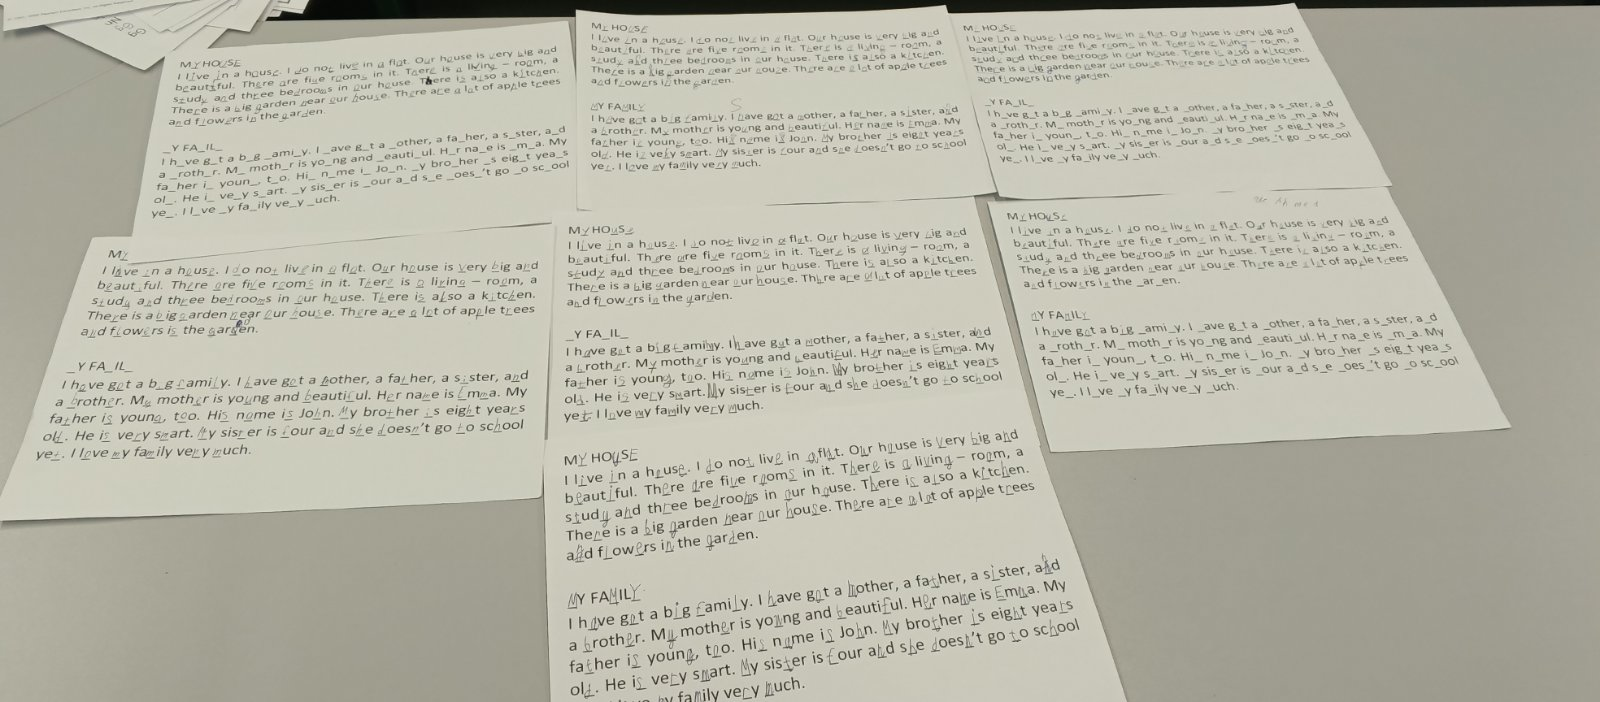 MY HOUSE
I live in a house. I do not live in a flat. Our house is very big and
beautiful. There are five rooms in it. There is a living – room, a
study and three bedrooms in our house. There is also a kitchen.
There is a big garden near our house. There are a lot of apple trees
and flowers in the garden.
_Y FA_IL_
I h_ve g_t a b_g _ami_y. I _ave g_t a _other, a fa_her, a s_ster, a_d
a _roth_r. M_ moth_r is yo_ng and _eauti_ul. H_r na_e is _m_a. My
fa_her i_ youn_, t_o. Hi_ n_me i_ Jo_n. _y bro_her _s eig_t yea_s
ol_. He i_ ve_y s_art. _y sis_er is _our a_d s_e _oes_'t go _o sc_ool
ye_. I l_ve _y fa_ily ve_y _uch.
MY HOUSE
I live in a house. I do not live in a flat. Our house is very big and
beautiful. There are five rooms in it. There is a living – room, a
study and three bedrooms in our house. There is also a kitchen.
There is a big garden near our house. There are a lot of apple trees
and flowers in the garden.
S
MY FAMILY
I have got a big family. I have got a mother, a father, a sister, and
a brother. My mother is young and beautiful. Her name is Emma. My
father is young, too. His name is John. My brother is eight years
old. He is very smart. My sister is four and she doesn't go to school
yet. I love my family very much.
MY HOUSE
I live in a house. I do not live in a flat. Our house is very big and
beautiful. There are five rooms in it. There is a living – room, a
study and three bedrooms in our house. There is also a kitchen.
There is a big garden near our house. There are a lot of apple trees
and flowers in the garden.
_Y FA_IL_
I h_ve g_t a b_g _ami_y. I _ave g_t a _other, a fa_her, a s_ster, a_d
a _roth_r. M_ moth_r is yo_ng and _eauti_ul. H_r na_e is _m_a. My
fa_her i_ youn_, t_o. Hi_ n_me i_ Jo_n. _y bro_her _s eig_t yea_s
ol_. He i_ ve_y s_art. _y sis_er is _our a_d s_e _oes_'t go _o sc_ool
ye_. I l_ve _y fa_ily ve_y _uch.
MY
I live in a house. I do not live in a flat. Our house is very big and
beautiful. There are five rooms in it. There is a living – room, a
study and three bedrooms in our house. There is also a kitchen.
There is a big garden near our house. There are a lot of apple trees
and flowers is the garden.
_Y FA_IL_
I have got a big family. I have got a bother, a father, a sister, and
a brother. My mother is young and beautiful. Her name is Emma. My
father is young, too. His name is John. My brother is eight years
old. He is very smart. My sister is four and she doesn't go to school
yet. I love my family very much.
MY HOUSE
I live in a house. I do not live in a flat. Our house is very big and
beautiful. There are five rooms in it. There is a living – room, a
study and three bedrooms in our house. There is also a kitchen.
There is a big garden near our house. There are a lot of apple trees
and flowers in the yarden.
_Y FA_IL_
I have got a big family. I have got a mother, a father, a sister, and
a brother. My mother is young and beautiful. Her name is Emma. My
father is young, too. His name is John. My brother is eight years
old. He is very smart. My sister is four and she doesn't go to school
yet. I love my family very much.
MY HOUSE
I live in a house. I do not live in a flat. Our house is very big and
beautiful. There are five rooms in it. There is a living – room, a
study and three bedrooms in our house. There is also a kitchen.
There is a big garden near our house. There are a lot of apple trees
and flowers in the _ar_en.
MY FAMILY
I have got a big _ami_y. I _ave g_t a _other, a fa_her, a s_ster, a_d
a _roth_r. M_ moth_r is yo_ng and _eauti_ul. H_r na_e is _m_a. My
fa_her i_ youn_, t_o. Hi_ n_me i_ Jo_n. _y bro_her _s eig_t yea_s
ol_. He i_ ve_y s_art. _y sis_er is _our a_d s_e _oes_'t go _o sc_ool
ye_. I l_ve _y fa_ily ve_y _uch.
MY HOUSE
I live in a house. I do not live in a flat. Our house is very big and
beautiful. There are five rooms in it. There is a living – room, a
study and three bedrooms in our house. There is also a kitchen.
There is a big garden near our house. There are a lot of apple trees
and flowers in the garden.
MY FAMILY
I have got a big family. I have got a mother, a father, a sister, and
a brother. My mother is young and beautiful. Her name is Emma. My
father is young, too. His name is John. My brother is eight years
old. He is very smart. My sister is four and she doesn't go to school
my family very much.